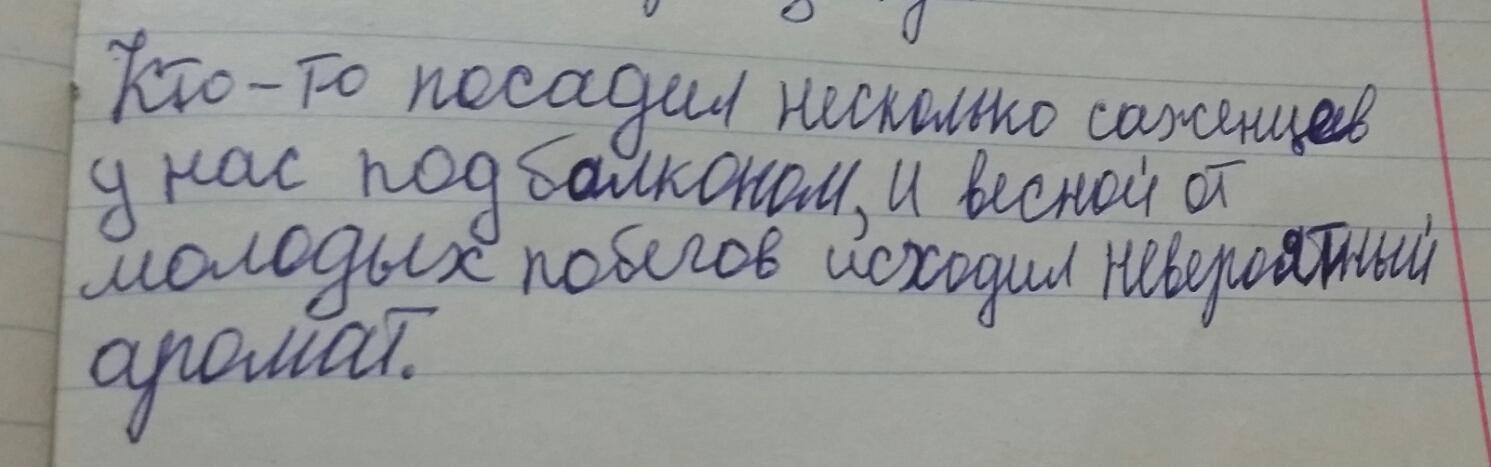 Кто-то посадил несколько саженцев
у нас под балконом, и весной от
молодых побегов исходил невероятный
аромат.